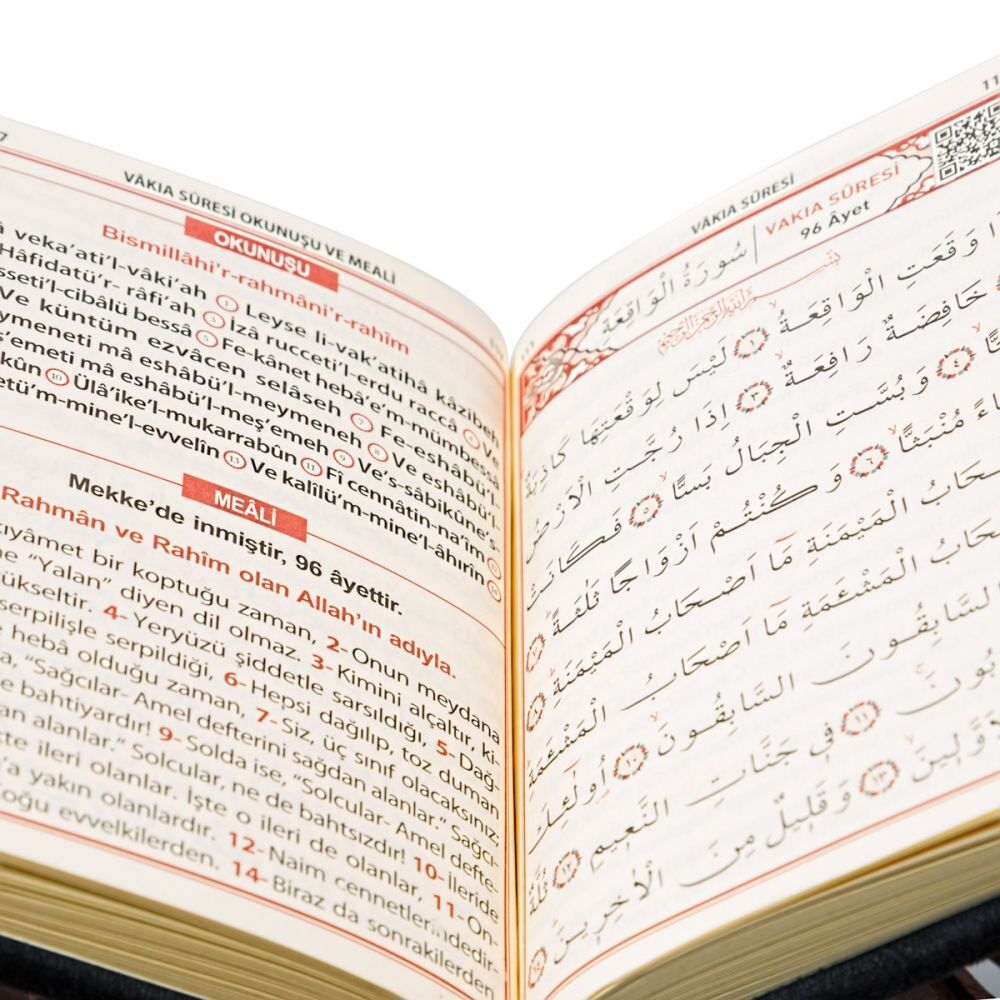 7
VÂKIA SÛRESİ OKUNUŞU VE MEALİ
OKUNUŞU
Bismillâhi'r-rahmâni'r-rahîm
veka'ati'l-vâki'ah ① Leyse li-vak'atihâ kâzibeh
Hâfidatü'r- râfi'ah ③ İzâ rucceti'l-erdu raccâ ④ Ve
sseti'l-cibâlü bessâ ⑤ Fe-kânet hebâ'e'm-mümbessâ
Ve küntüm ezvâcen selâseh ⑦ Fe-eshâbü'l-
ymeneti mâ eshâbü'l-meymeneh ⑧ Ve eshâbü'l-
ş'emeti mâ eshâbü'l-meş'emeh ⑨ Ve's-sâbikûne's-
kûn ⑩ Ülâ'ike'l-mukarrabûn ⑪ Fî cennâtin-na'îm ⑫
etü'm-mine'l-evvelîn ⑬ Ve kalîlü'm-mine'l-âhırîn ⑭
MEÂLİ
Mekke'de inmiştir, 96 âyettir.
Rahmân ve Rahîm olan Allah'ın adıyla.
kıyâmet bir koptuğu zaman, 2- Onun meydana
ne "Yalan" diyen dil olmaz. 3- Kimini alçaltır, ki-
yükseltir. 4- Yeryüzü şiddetle sarsıldığı, 5- Dağ-
serpilişle serpildiği, 6- Hepsi dağılıp, toz duman
heba olduğu zaman, 7- Siz, üç sınıf olacaksınız;
a, "Sağcılar- Amel defterini sağdan alanlar." Sağcı-
e bahtiyardır! 9- Solda ise, "Solcular- Amel defte-
an alanlar." Solcular, ne de bahtsızdır! 10- İleride
te ileri olanlar. İşte o ileri de olanlar, 11- On-
'a yakın olanlardır. 12- Naim cennetlerindedir-
oğu evvelkilerden. 14- Biraz da sonrakilerden
11
VÂKIA SÛRESİ
سُورَةُ الْوَاقِعَةِ
VAKIA SÛRESİ
96 Âyet
بِسْمِ اللّٰهِ الرَّحْمٰنِ الرَّحِيمِ
ا وَقَعَتِ الْوَاقِعَةُ ١ لَيْسَ لِوَقْعَتِهَا كَاذِبَةٌ
خَافِضَةٌ رَافِعَةٌ ٣ اِذَا رُجَّتِ الْاَرْضُ
ًّا ٤ وَبُسَّتِ الْجِبَالُ بَسًّا ٥ فَكَانَتْ
اءً مُنْبَثًّا ٦ وَكُنْتُمْ اَزْوَاجًا ثَلٰثَةً ٧
حَابُ الْمَيْمَنَةِ مَا اَصْحَابُ الْمَيْمَنَةِ ٨
حَابُ الْمَشْئَمَةِ مَا اَصْحَابُ الْمَشْئَمَةِ
السَّابِقُونَ السَّابِقُونَ ١٠ اُولٰئِكَ
بُونَ ١١ فِي جَنَّاتِ النَّعِيمِ ١٢ ثُلَّةٌ
وَّلِينَ ١٣ وَقَلِيلٌ مِنَ الْاٰخِرِينَ ١٤